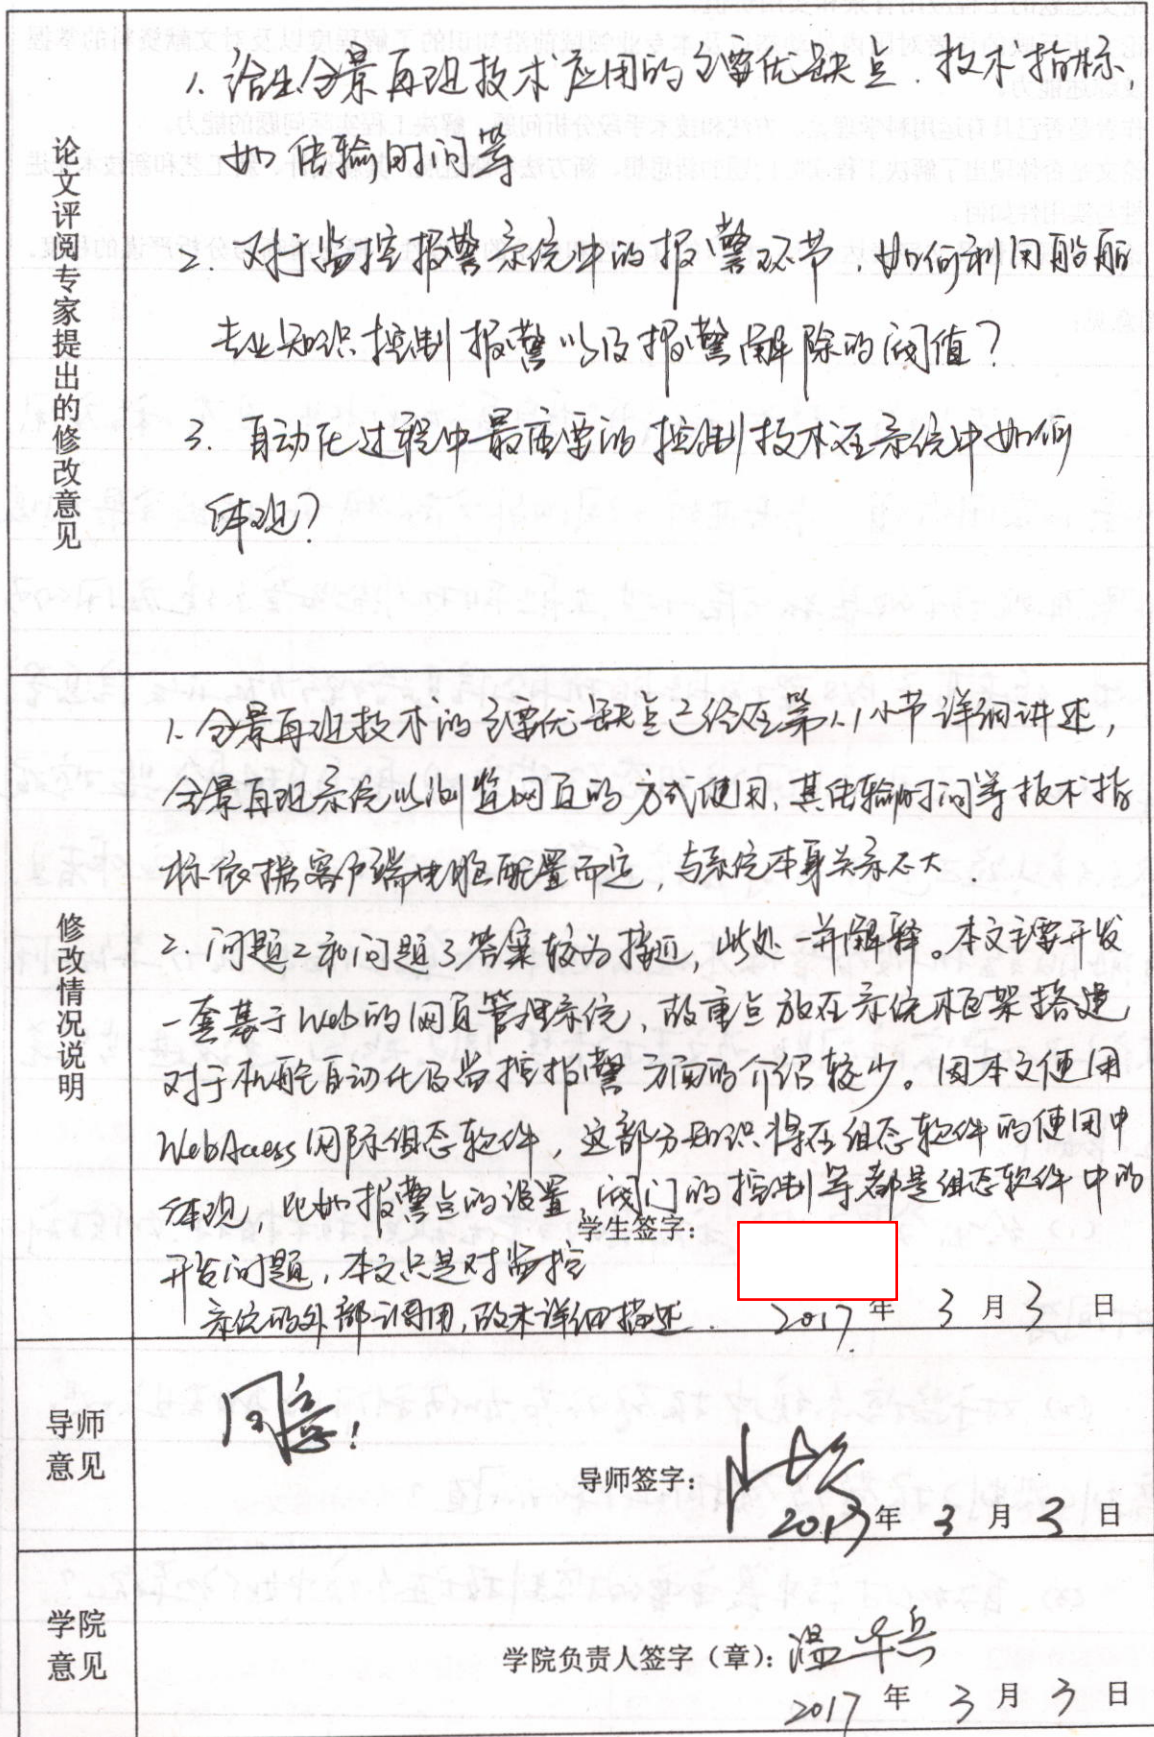 论文评阅专家提出的修改意见
1. 给出全景再现技术应用的主要优缺点、技术指标,
如传输时间等
2. 对于监控报警系统中的报警环节,如何利用船舶
专业知识控制报警以及报警解除的阀值?
3. 自动化过程中最重要的控制技术在系统中如何
体现?
修改情况说明
1. 全景再现技术的主要优缺点已经在第1.1小节详细讲述,
全景再现系统以浏览网页的方式使用,其传输时间等技术指
标依据客户端电脑配置而定,与系统本身关系不大.
2. 问题2和问题3答案较为接近,此处一并解释。本文主要开发
一套基于Web的网页管理系统,故重点放在系统框架搭建,
对于机舱自动化及监控报警方面的介绍较少。因本文使用
WebAccess网际组态软件,这部分知识将在组态软件的使用中
体现,比如报警点的设置、阀门的控制等都是组态软件中的
开发问题,本文只是对监控
系统的外部调用,故未详细描述.
学生签字:
2017年3月3日
导师意见
同意!
导师签字:
2017年3月3日
学院意见
学院负责人签字(章):温华兵
2017年3月3日